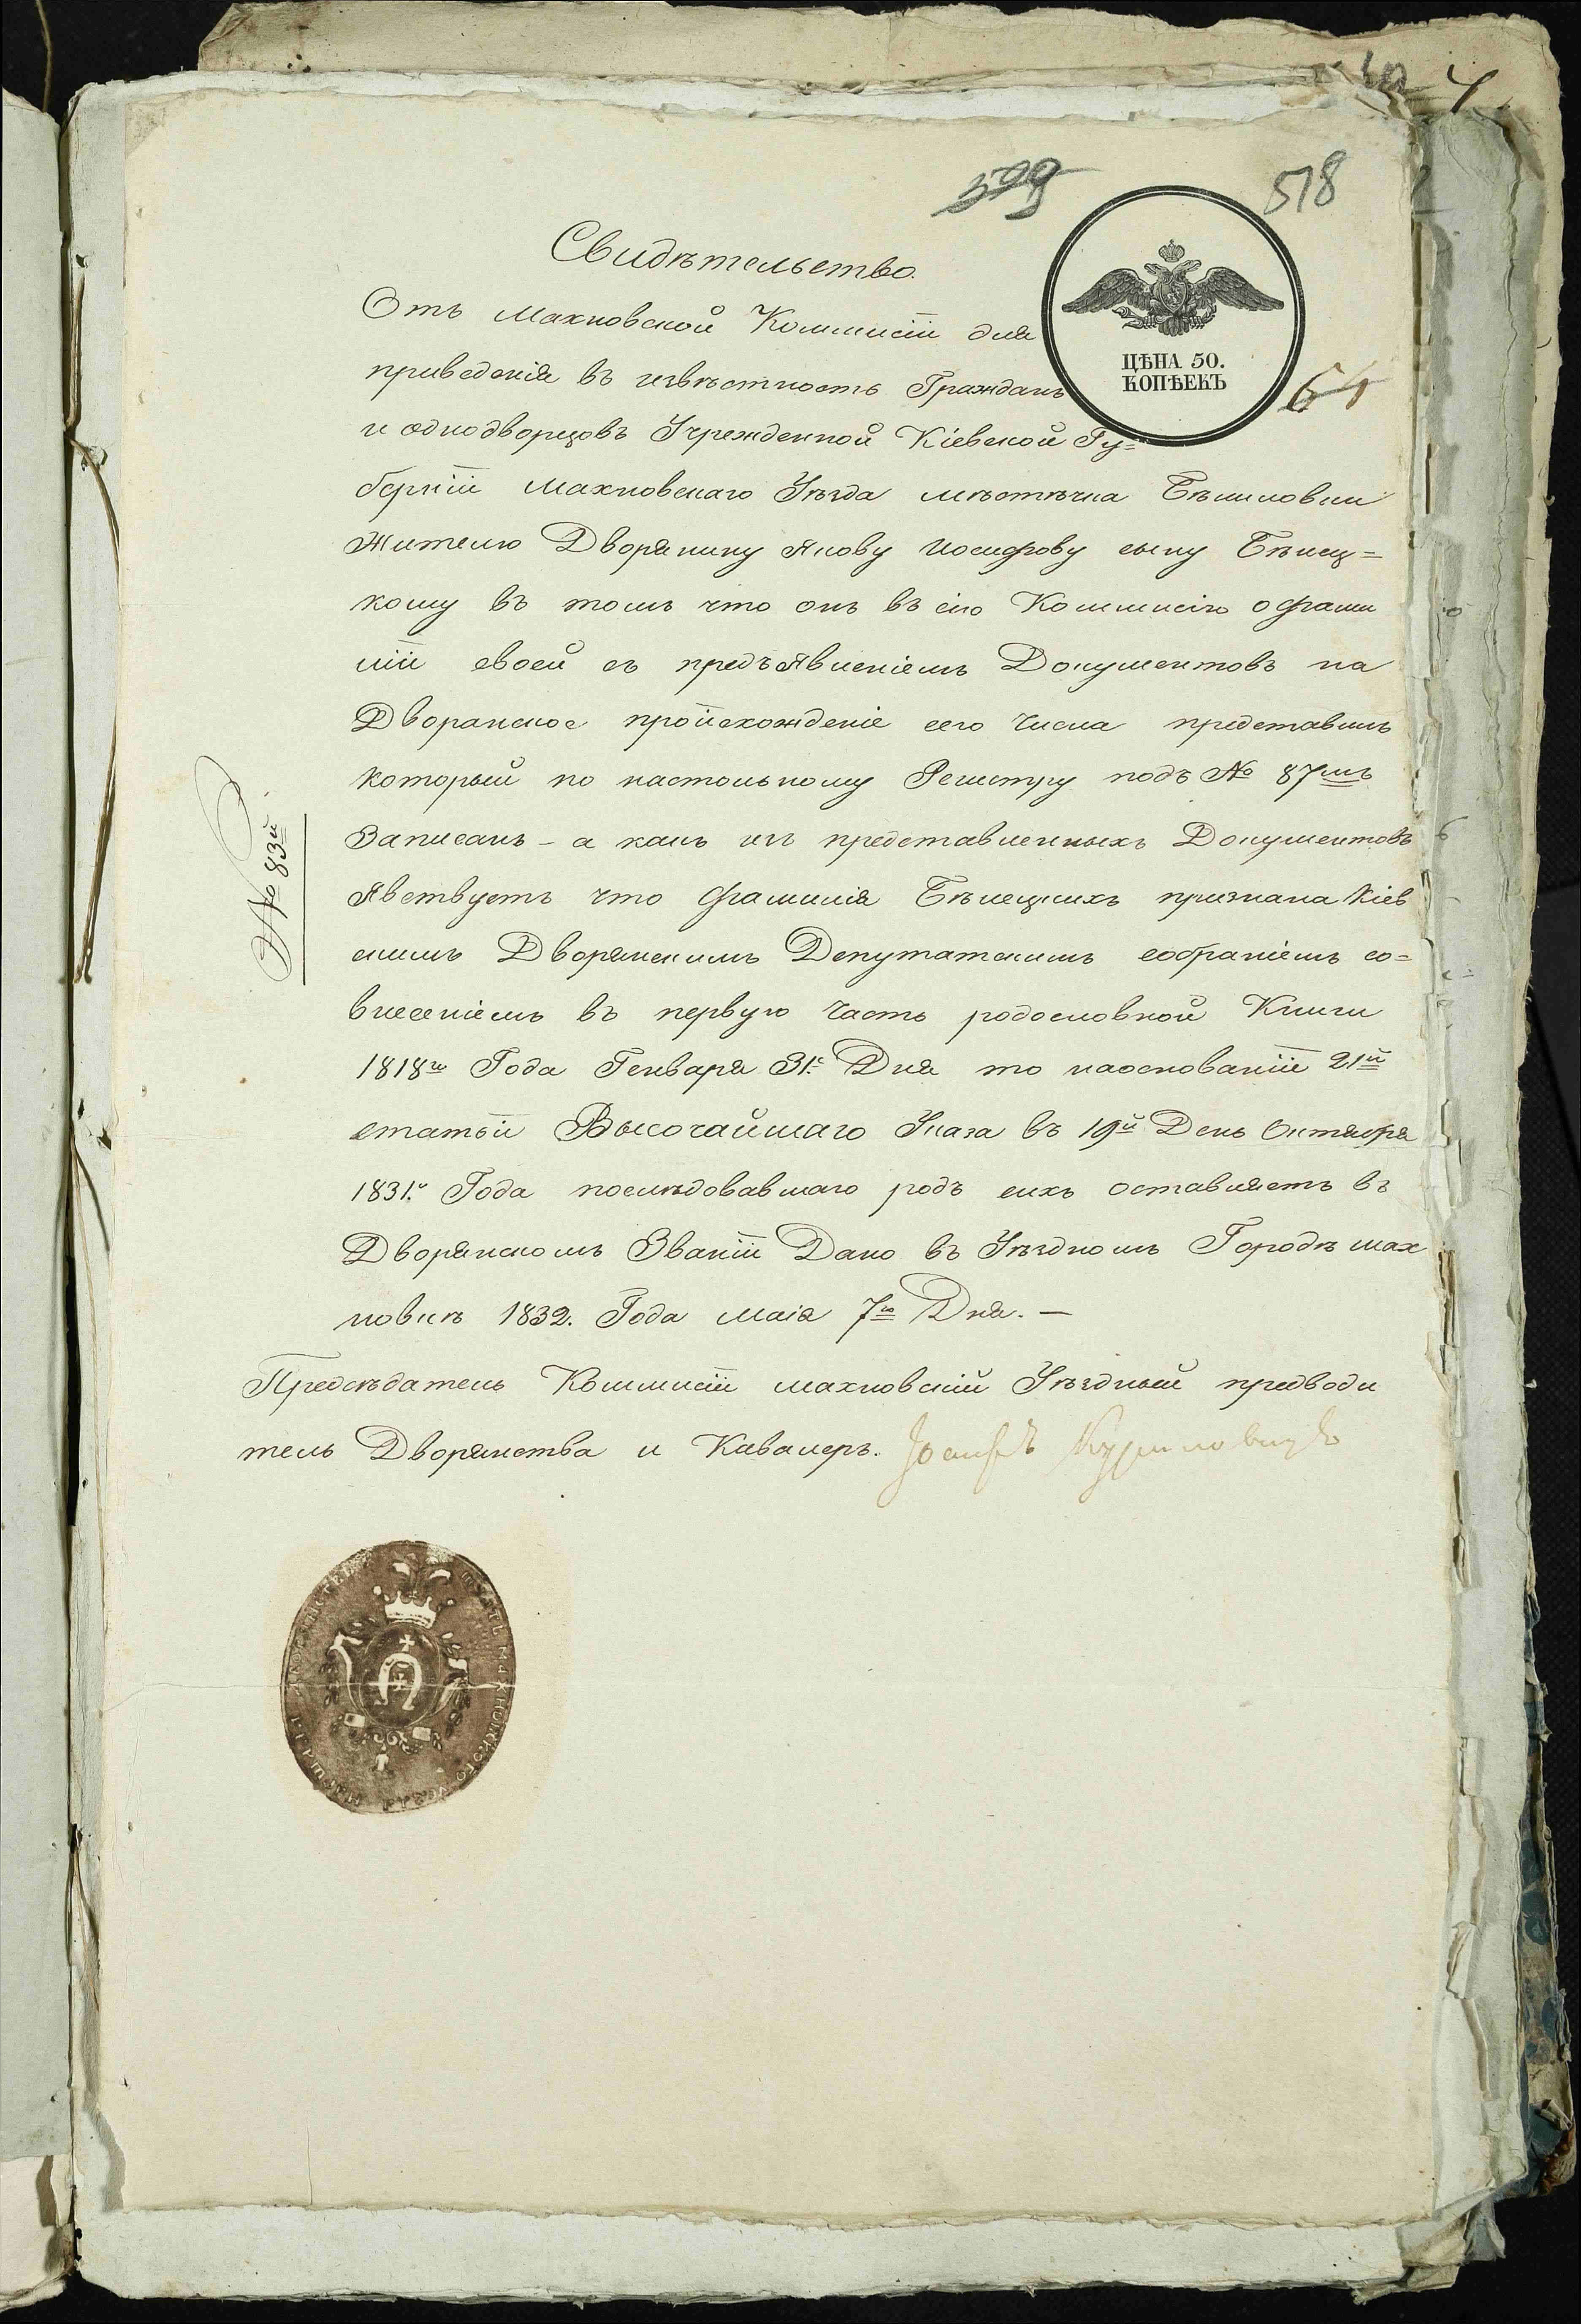 4
599
518
Свидѣтельство.
ЦѢНА 50.
КОПѢЕКЪ
64
Отъ Махновской Коммисіи для
приведенія въ извѣстность Гражданъ
и однодворцовъ Учрежденной Кіевской Гу=
берніи Махновскаго Уѣзда мѣстѣчка Бѣлиловки
Жителю Дворянину Якову Иосифову сыну Бѣлец=
кому въ томъ что онъ въ сію Коммисію о фами
ліи своей съ предъявленіемъ Документовъ на
Дворанское происхожденіе сего Числа представилъ
который по настольному Регистру подъ № 87мъ
Записанъ – а какъ изъ представленныхъ Документовъ
Явствуетъ что фамилія Бѣлецкихъ признана Кіев
скимъ Дворянскимъ Депутатскимъ собраніемъ со=
внесеніемъ въ первую Часть родословной Книги
1818го Года Генваря 31го Дня то наоснованіи 21й
статьи Высочайшаго Указа въ 19й День Октября
1831го Года послѣдовавшаго родъ сихъ оставляетъ въ
Дворянскомъ Званіи Дано въ Уѣздномъ Городѣ Мах
новкѣ 1832. Года Маія 7го Дня. —
№ 83й
Предсѣдатель Коммисіи Махновскій Уѣздный предводи
тель Дворянства и Кавалеръ. Іосифъ